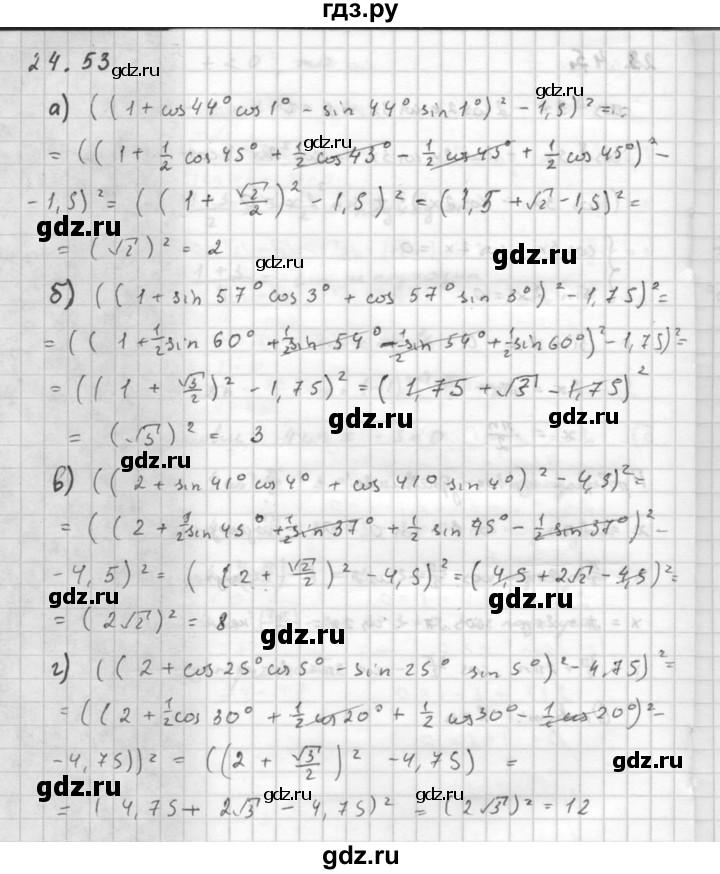 гдз.ру
24.53
gdz.ru
gdz.ru
а) ((1+cos44°cos1° - sin 44° sin1°)² - 1,5)² =
= ((1 + 1/2 cos 45° + 1/2 cos 43° - 1/2 cos 43° + 1/2 cos 45°)² -
- 1,5)² = ((1 + √2/2)² - 1,5)² = (1,5 + √2 - 1,5)² =
gdz.ru
= (√2)² = 2
gdz.ru
gdz.ru
б) ((1+sin 57° cos 3° + cos 57° sin 3°)² - 1,75)² =
= ((1 + 1/2 sin 60° + 1/2 sin 54° - 1/2 sin 54° + 1/2 sin 60°)² - 1,75)² =
= ((1 + √3/2)² - 1,75)² = (1,75 + √3 - 1,75)²
gdz.ru
gdz.ru
= (√3)² = 3
gdz.ru
в) ((2 + sin 41° cos 4° + cos 41° sin 4°)² - 4,5)² =
= ((2 + 1/2 sin 45° + 1/2 sin 37° + 1/2 sin 45° - 1/2 sin 37°)² -
- 4,5)² = ((2 + √2/2)² - 4,5)² = (4,5 + 2√2 - 4,5)² =
gdz.ru
gdz.ru
= (2√2)² = 8
gdz.ru
г) ((2 + cos 25° cos 5° - sin 25° sin 5°)² - 4,75)² =
gdz.ru
= ((2 + 1/2 cos 30° + 1/2 cos 20° + 1/2 cos 30° - 1/2 cos 20°)² -
- 4,75))² = ((2 + √3/2)² - 4,75) =
gdz.ru
gdz.ru
gdz.ru
= (4,75 + 2√3 - 4,75)² = (2√3)² = 12
gdz.ru
gdz.ru